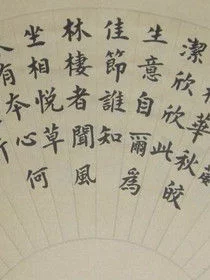 華秋皎
潔欣欣此
生意自爾為
佳節誰知
林棲者聞風
坐相悅草
木有本心何